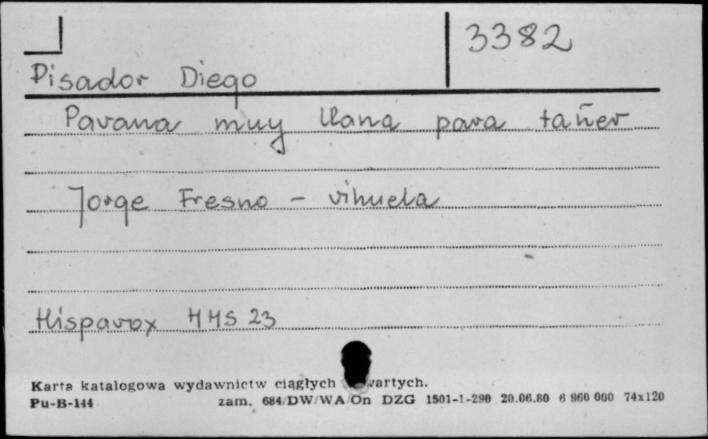 3382
Pisador Diego
Pavana muy llana para tañer
Jorge Fresno - vihuela
Hispavox HHS 23
Karta katalogowa wydawnictw ciągłych wartych.
Pu-B-144 zam. 684/DW/WA/On DZG 1501-1-290 20.06.80 6 960 000 74x120